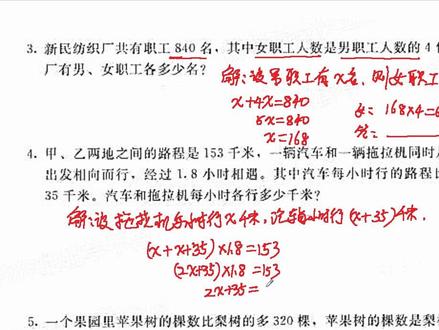 3. 新民纺织厂共有职工 840 名，其中女职工人数是男职工人数的 4
厂有男、女职工各多少名？
解：设男职工有x名，则女职工
x+4x=840
女： 168×4=
5x=840
答：
x=168
4. 甲、乙两地之间的路程是 153 千米，一辆汽车和一辆拖拉机同时
出发相向而行，经过 1.8 小时相遇。其中汽车每小时行的路程比
35 千米。汽车和拖拉机每小时各行多少千米？
解：设拖拉机每小时行x千米，汽车每小时行(x+35)千米.
(x+x+35)×1.8=153
(2x+35)×1.8=153
2x+35=
5. 一个果园里苹果树的棵数比梨树的多 320 棵，苹果树的棵数是梨